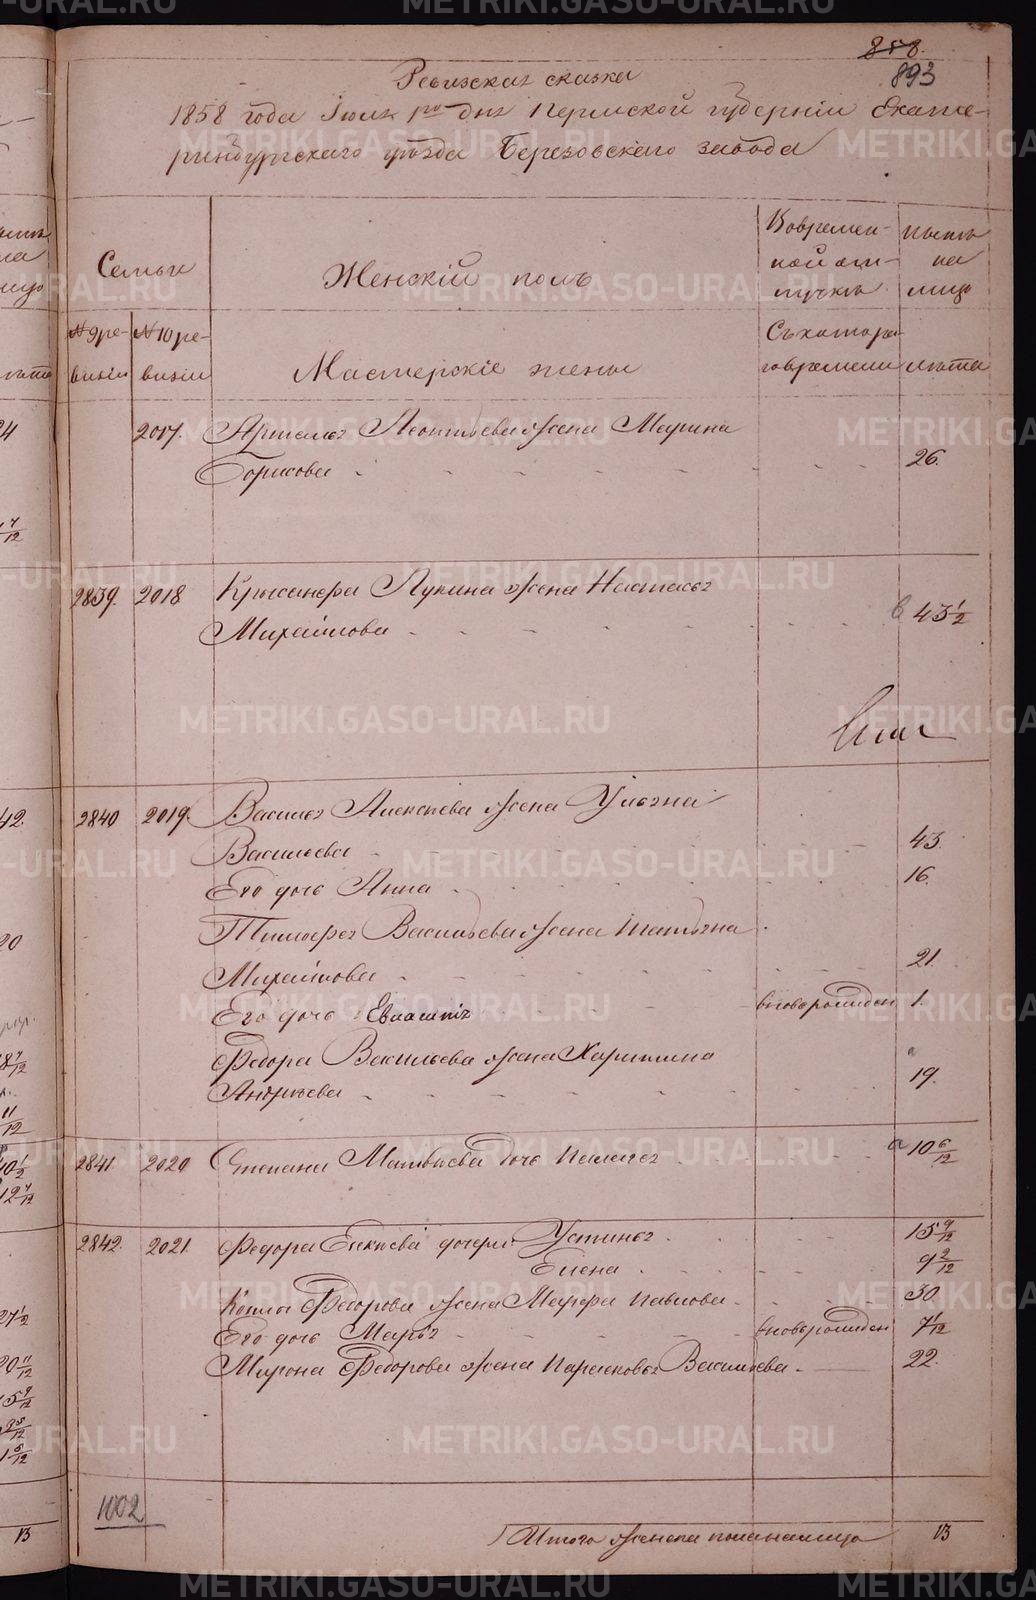 858.
893
Ревизская сказка
1858 года Іюля 1го дня Пермской губерніи Екате-
ринбургскаго уѣзда Березовскаго завода
Семьи
Женскій полъ
Вовремен-
ной от-
лучкѣ
На
лицо
№ 9 ре-
визіи
№ 10 ре-
визіи
Мастерскіе жены
Съ котора-
го времени
Лѣта
2017. Леонтьева жена Марина
Борисова 26.
2839. 2018 Лукина жена Настасья
Михайлова 43 1/2
2840 2019. Василья Алексѣева жена Ульяна
Васильева 43.
Его дочь Анна 16.
Тимофея Васильева жена Татьяна
Михайлова 21.
Его дочь Евлампія вноворожден 1.
Федора Васильева жена Харитина
Андреева 19.
2841. 2020 Степана Матвѣева дочь Пелагея 10 6/12
2842. 2021. Федора Евсѣева дочери Устинья 15 9/12
Елена 9 2/12
Федорова жена Марфа Павлова 30.
Его дочь Марья вноворожден 7/12
Мирона Федорова жена Парасковья Васильева 22.
1002
Итого женска пола налицо 13
METRIKI.GASO-URAL.RU